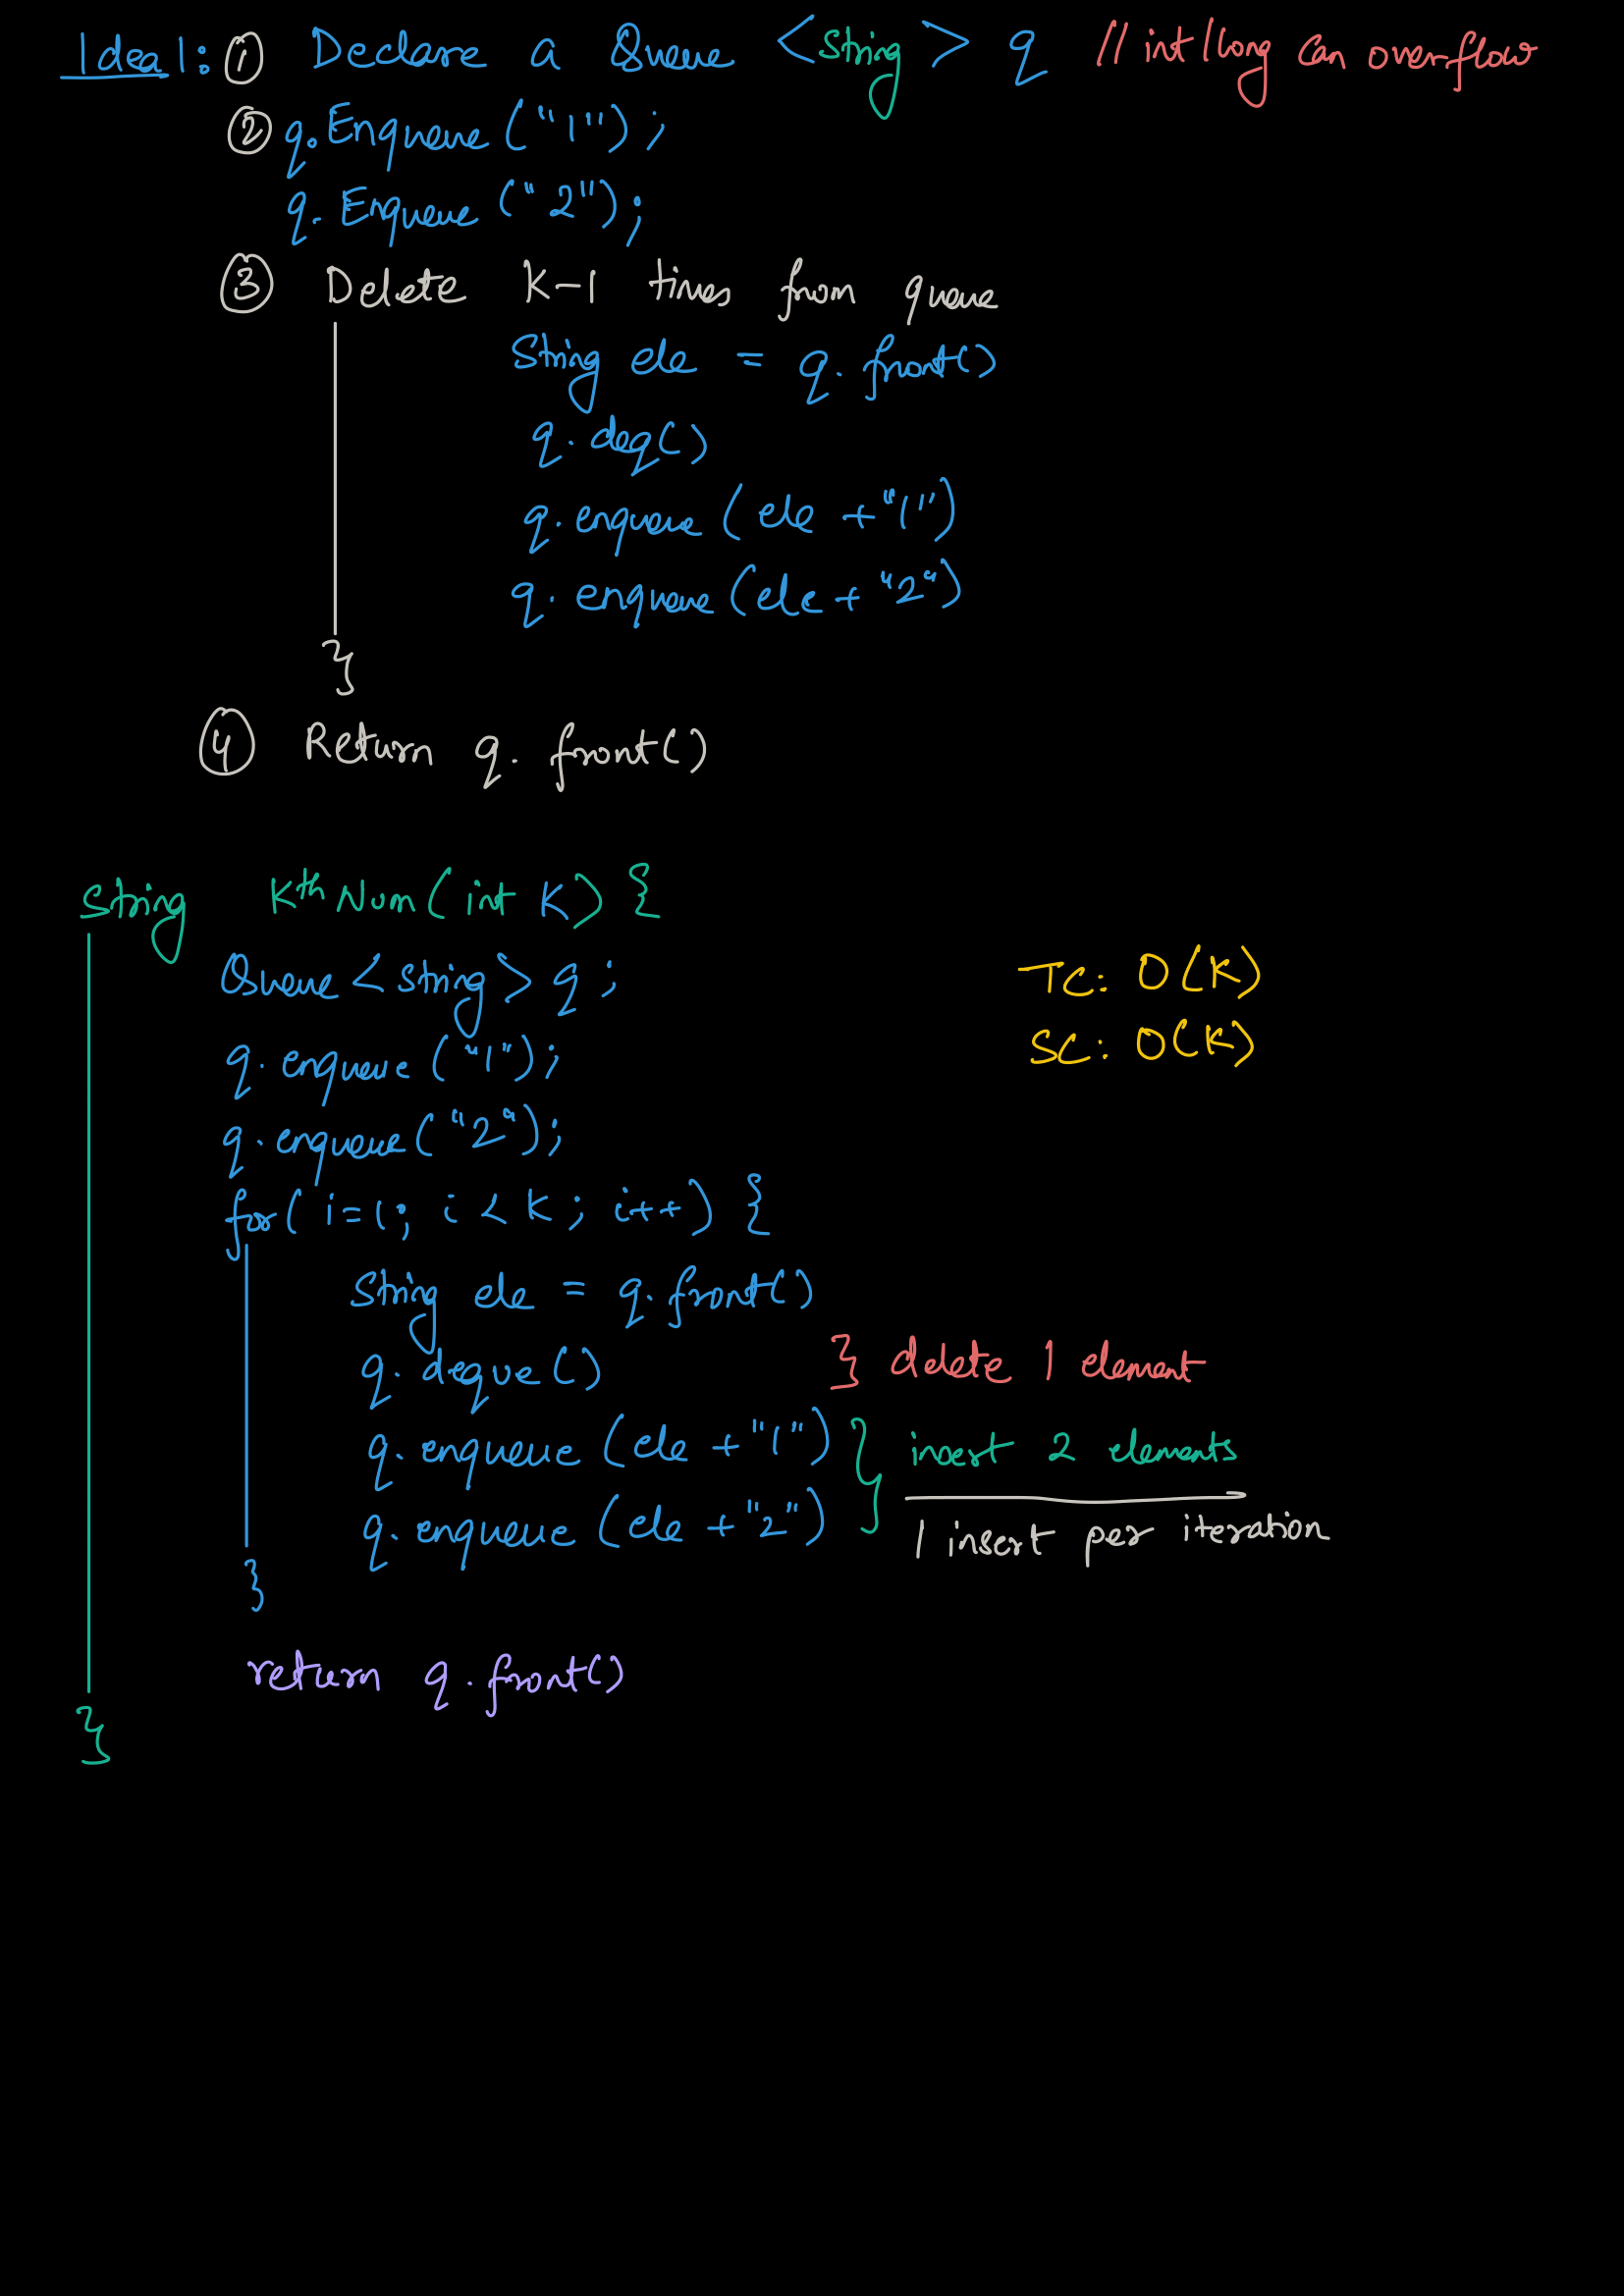 Idea 1: ① Declare a Queue <String> q // int/long can overflow
② q.Enqueue("1");
q.Enqueue("2");
③ Delete K-1 times from queue
String ele = q.front()
q.deq()
q.enqueue(ele + "1")
q.enqueue(ele + "2")
}
④ Return q.front()
String KthNum(int K) {
Queue <String> q;
q.enqueue("1");
q.enqueue("2");
for(i=1; i<K; i++) {
String ele = q.front()
q.deque() } delete 1 element
q.enqueue(ele + "1") } insert 2 elements
q.enqueue(ele + "2") 1 insert per iteration
}
return q.front()
}
TC: O(K)
SC: O(K)